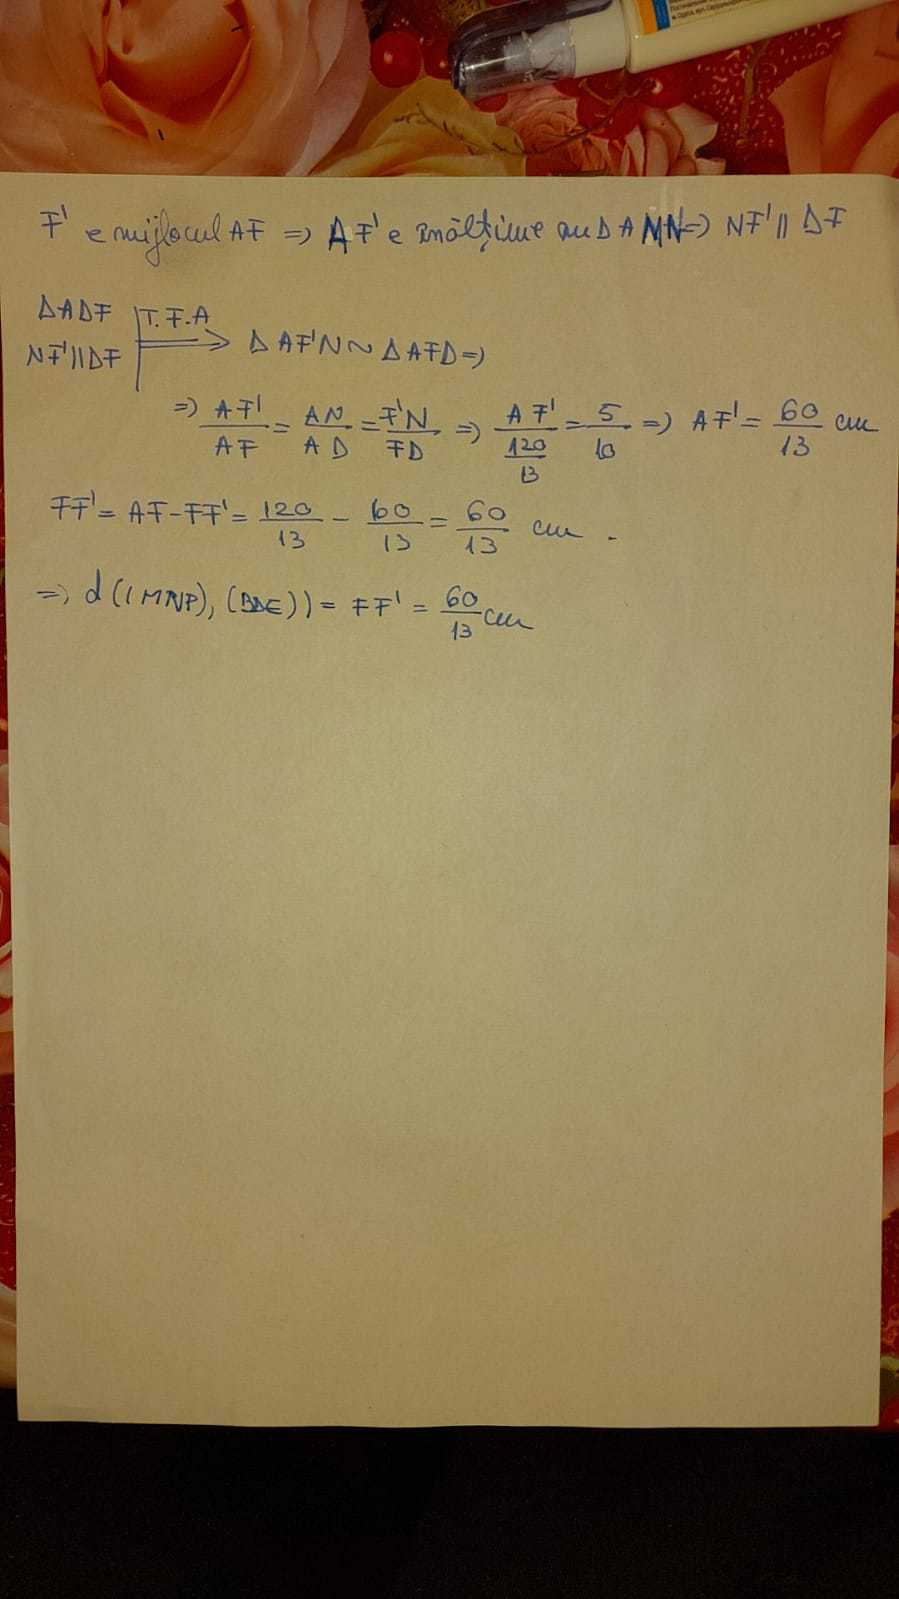 F' e mijlocul AF => AF' e înălțime în Δ AMN => NF' || DF
ΔADF | T.F.A
NF'||DF => Δ AF'N ~ Δ AFD =>
=> AF'/AF = AN/AD = F'N/FD => AF'/(120/13) = 5/10 => AF' = 60/13 cm
FF' = AF - FF' = 120/13 - 60/13 = 60/13 cm.
=> d((MNP), (BDE)) = FF' = 60/13 cm